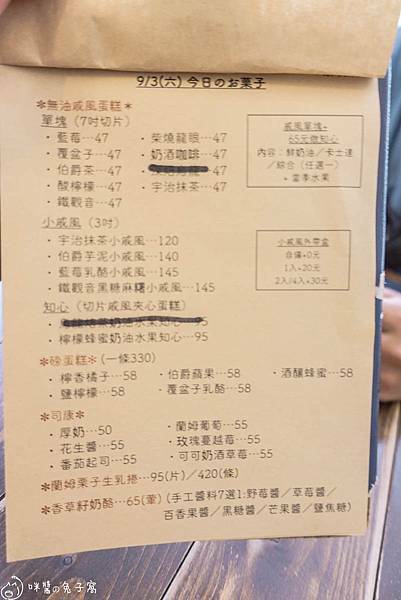 9/3(六) 今日のお菓子
*無油戚風蛋糕*
單塊 (7吋切片)
·藍莓…47
·覆盆子…47
·伯爵茶…47
·酸檸檬…47
·鐵觀音…47
·柴燒龍眼…47
·奶酒咖啡…47
·宇治抹茶…47
戚風單塊+
65元做知心
內容:鮮奶油/卡士達
/綜合(任選一)
+當季水果
小戚風 (3吋)
·宇治抹茶小戚風…120
·伯爵芋泥小戚風…140
·藍莓乳酪小戚風…145
·鐵觀音黑糖麻糬小戚風…145
小戚風外帶盒
自備+0元
1入+20元
2入/4入+30元
知心 (切片戚風夾心蛋糕)
奶油水果知心…95
·檸檬蜂蜜奶油水果知心…95
*磅蛋糕* (一條330)
·檸香橘子…58
·鹽檸檬…58
·伯爵蘋果…58
·覆盆子乳酪…58
·酒釀蜂蜜…58
*司康*
·厚奶…50
·花生醬…55
·番茄起司…55
·蘭姆葡萄…55
·玫瑰蔓越莓…55
·可可奶酒草莓…55
*蘭姆栗子生乳捲…95(片)/420(條)
*香草籽奶酪…65(葷) (手工醬料7選1:野莓醬/草莓醬/
百香果醬/黑糖醬/芒果醬/鹽焦糖)
咪醬の兔子窩